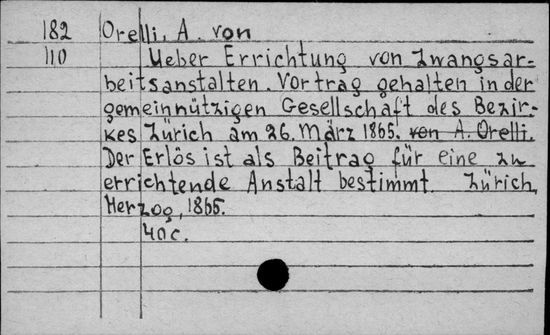 182 Orelli, A. von
110 Ueber Errichtung von Zwangsar-
beitsanstalten. Vortrag gehalten in der
gemeinnützigen Gesellschaft des Bezir-
kes Zürich am 26. März 1865. von A. Orelli.
Der Erlös ist als Beitrag für eine zu
errichtende Anstalt bestimmt. Zürich,
Herzog, 1865.
40 c.